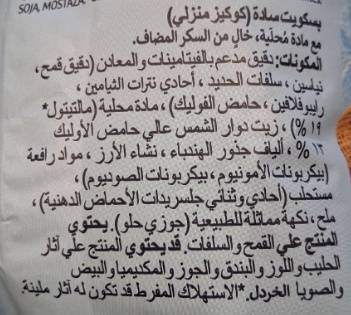 SOJA, MOSTAZA.
بسكويت سادة (كوكيز منزلي)
مع مادة مُحلية، خالٍ من السكر المضاف.
المكونات: دقيق مدعم بالفيتامينات والمعادن (دقيق قمح،
نياسين، سلفات الحديد، أحادي نترات الثيامين،
رايبوفلافين، حامض الفوليك)، مادة محلية (مالتيتول*
١٩%)، زيت دوار الشمس عالي حامض الأوليك
١٣%، ألياف جذور الهندباء، نشاء الأرز، مواد رافعة
(بيكربونات الأمونيوم، بيكربونات الصوديوم)،
مستحلب (أحادي وثنائي جلسريدات الأحماض الدهنية)،
ملح، نكهة مماثلة للطبيعية (جوزي حلو). يحتوي
المنتج على القمح والسلفات. قد يحتوي المنتج على آثار
الحليب واللوز والبندق والجوز والمكديميا والبيض
والصويا الخردل. *الاستهلاك المفرط قد تكون له آثار ملينة.